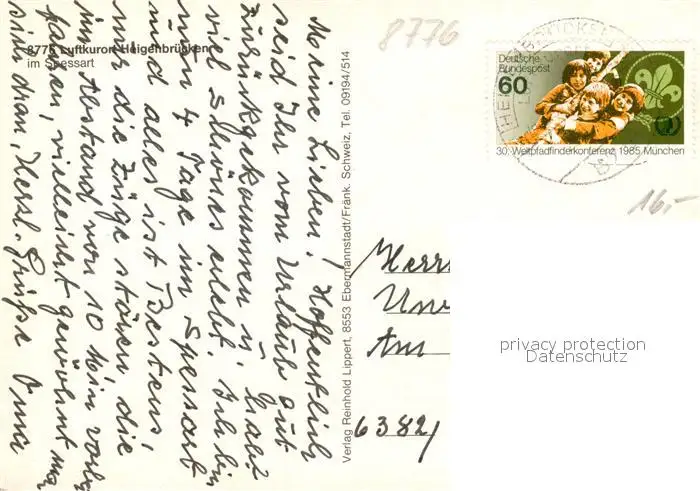 8776 Luftkurort Heigenbrücken
im Spessart
Meine Lieben! Hoffentlich
seid Ihr vom Urlaub gut
zurückgekommen u. habt
viel Schönes erlebt. Ich bin
nun 4 Tage im Spessart
und alles ist Bestens,
nur die Züge stören die
im Abstand von 10 Min vorbei
fahren, vielleicht gewöhnt man
sich dran, Herzl. Grüße Oma
Verlag Reinhold Lippert, 8553 Ebermannstadt/Fränk. Schweiz, Tel. 09194/514
8776
Deutsche
Bundespost
60
30. Weltpfadfinderkonferenz 1985 München
16,-
Herrn
Am
6382
privacy protection
Datenschutz